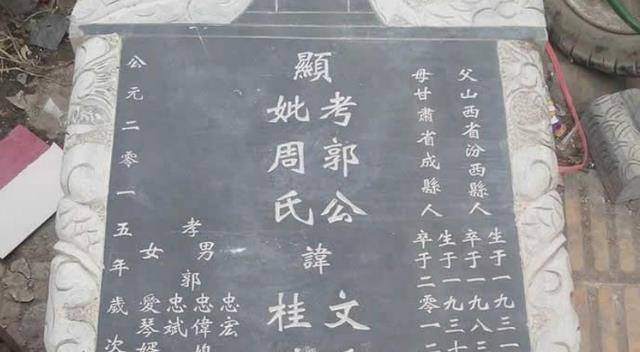 父山西省汾西縣人
生于一九三一
卒于一九八三
母甘肅省成縣人
生于一九三
卒于二零一二
顯考郭公諱文
妣周氏桂
孝男郭
忠宏
忠偉
忠斌
女愛琴婿
公元二零一五年歲次